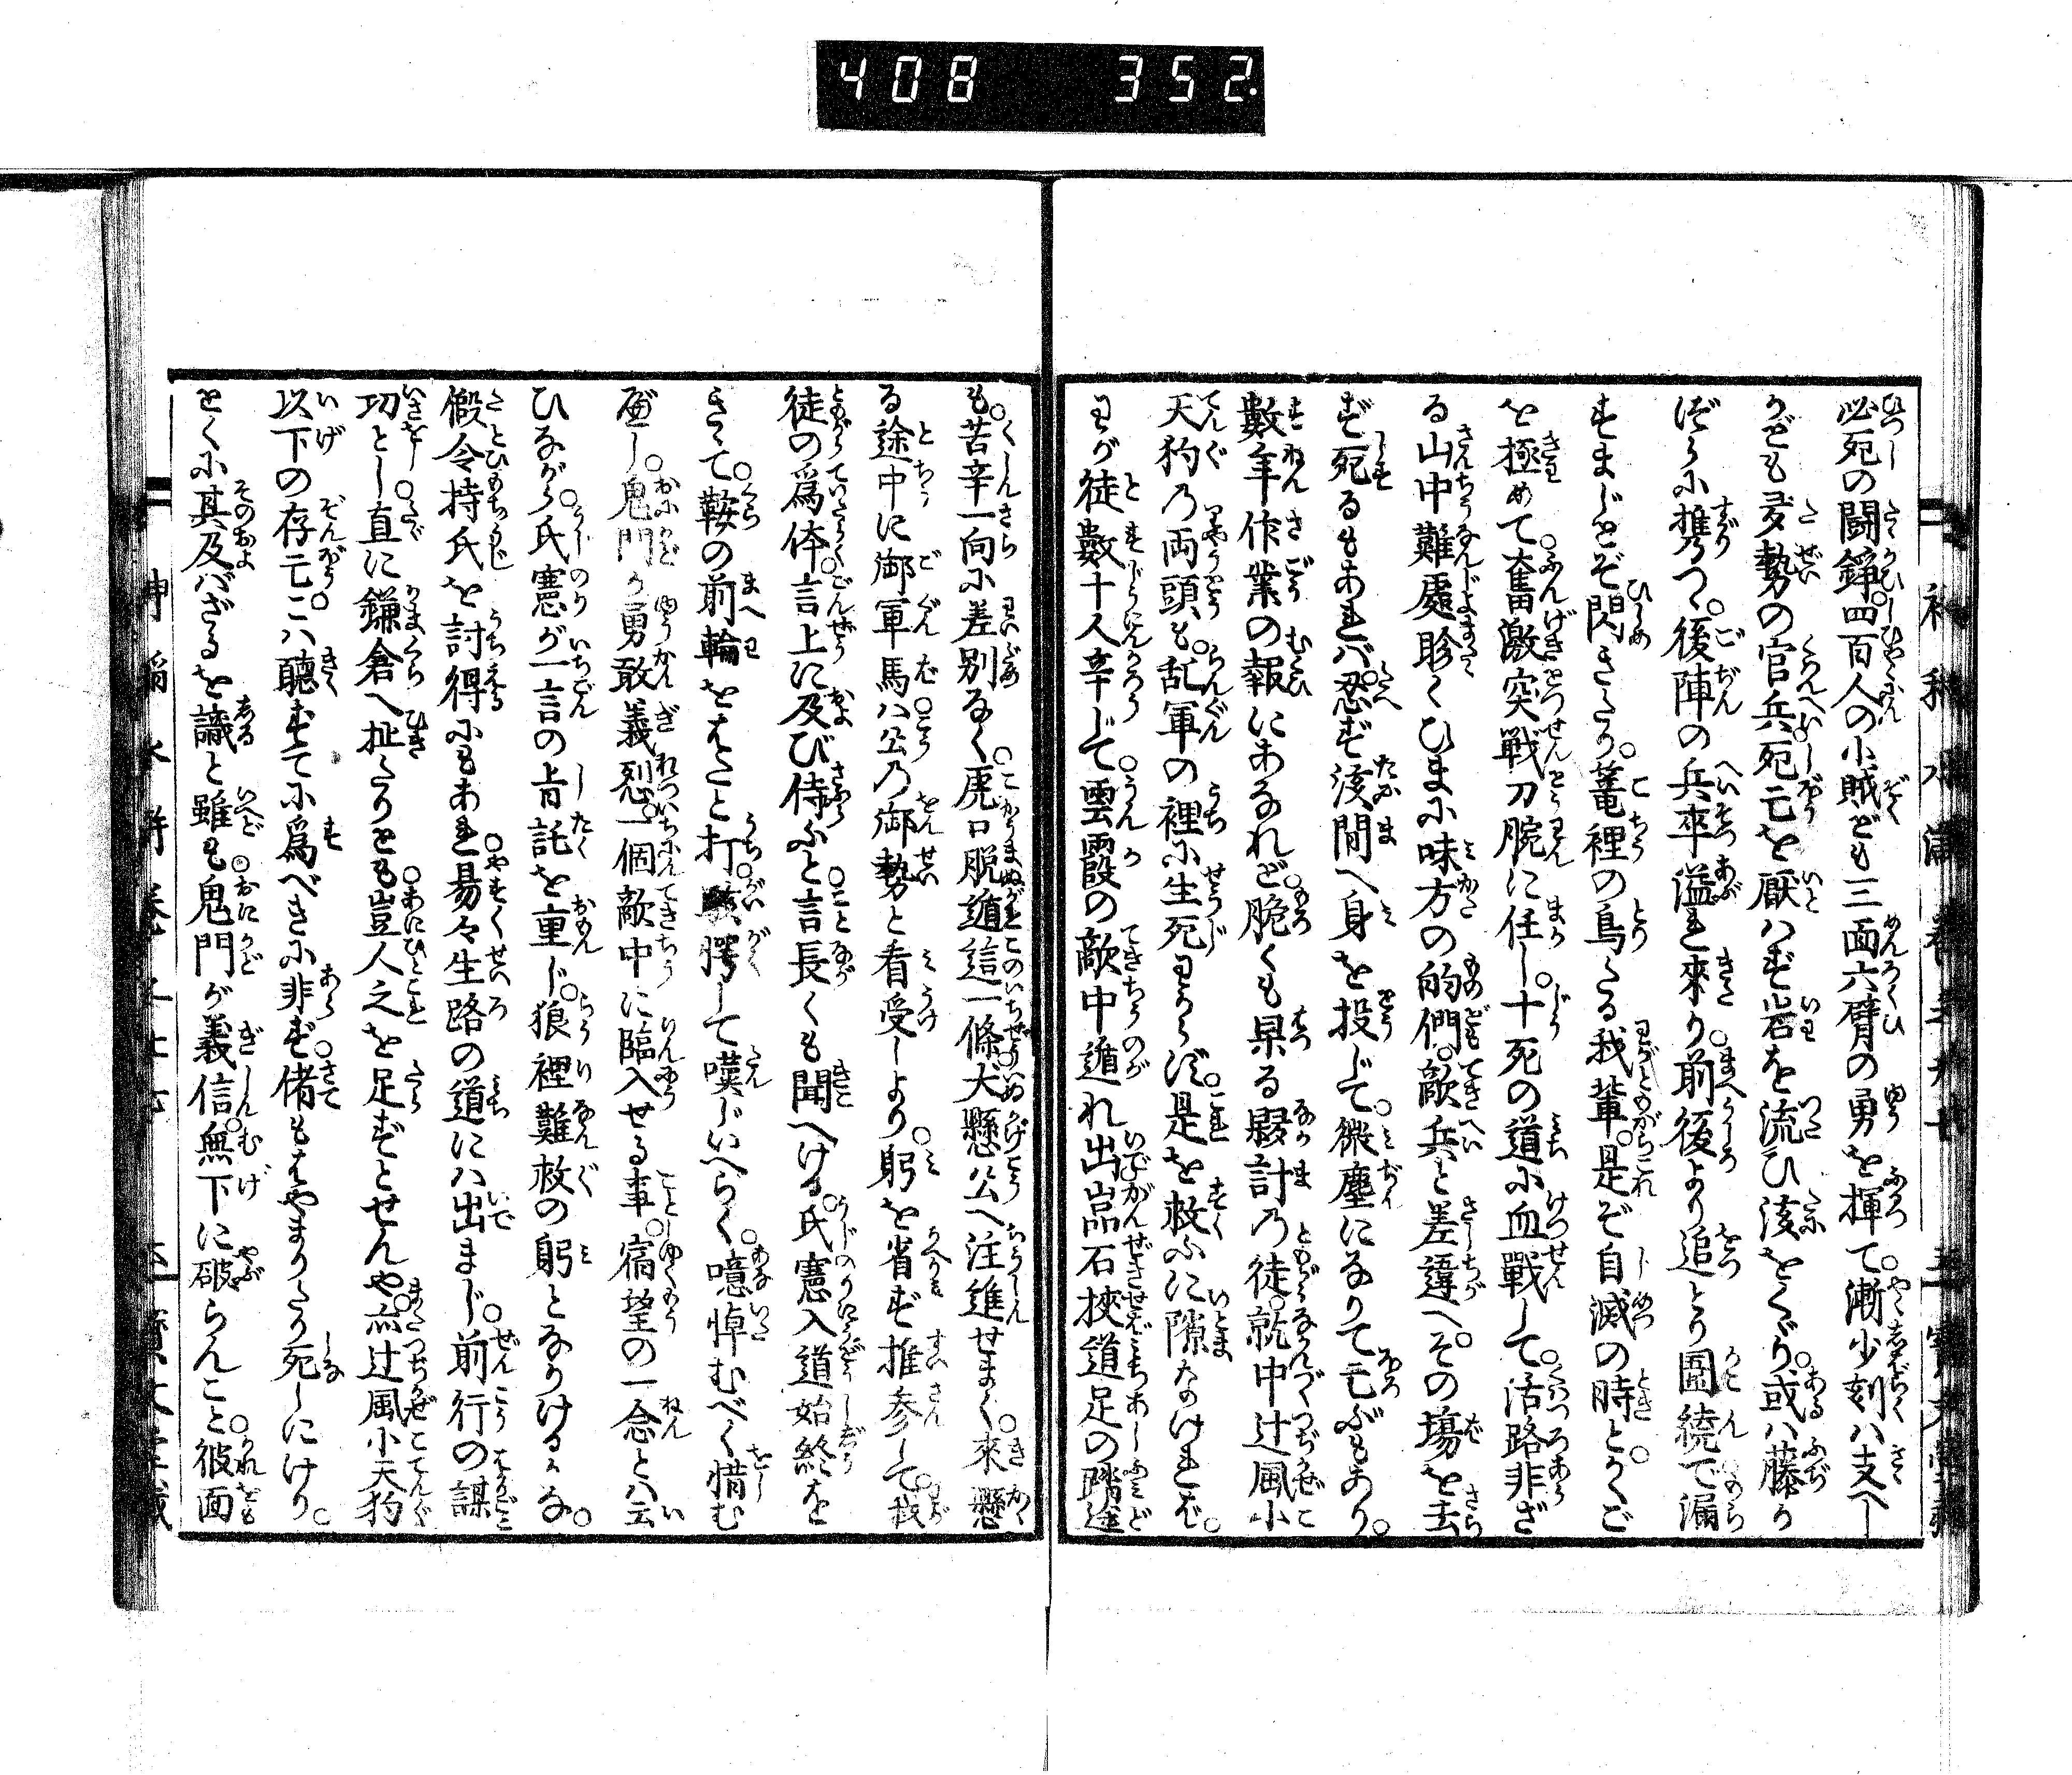 408 352.
必死の闘諍。四百人の小賊ども三面六臂の勇を揮て。漸少刻ハ支へし
かども多勢の官兵死亡を厭ハず岩を流ひ渡をくぐり。或ハ藤か
づらに携りつゝ。後陣の兵卒溢れ來り。前後より追とり圍繞で漏
すまじとぞ閃きたり。篭裡の鳥たる我輩。是ぞ自滅の時と。かくご
を極めて。奮激突戰刀腕に任し。十死の道小血戰して。活路非ざ
る山中難處眇くひま小味方の的們。敵兵と差違へ。その塲を去
ず死るもあれバ。忍ず谷間へ身を投じて。微塵になりて亡ぶもあり。
數年作業の報にあなれど。脆くも果る夥計乃徒。就中辻風小
天狗乃両頭も。乱軍の裡小生死わからず。是を救ふに隙なけれバ。
わが徒數十人辛じて。雲霞の敵中遁れ出嵓石挾道足の踏途
も。苦辛一向小差別なく。虎口脱遁這一條大懸公へ注進せまく。來懸
る途中に御軍馬ハ公乃御勢と看受しより。躬を省ず推参して。我
徒の爲体。言上に及び侍ふと。言長くも聞へける。氏憲入道始終を
きゝて。鞍の前輪をはたと打。駭愕して嘆じいへらく。噫悼むべく惜む
べし。鬼門が勇敢義烈。一個敵中に臨入せる事。宿望の一念とハ云
ひながら。氏憲が一言の旨託を重じ。狼裡難救の躬となりけるかな。
假令持氏を討得小もあれ。易々生路の道にハ出まじ。前行の謀
功とし。直に鎌倉へ扯たりとも。豈人之を足ずとせんや。亦辻風小天狗
以下の存亡ハ聽ずて小爲べき小非ず。偖もはやまりたり死しにけり。
とく小其及バざるを識と雖も。鬼門が義信。無下に破らんこと。彼面